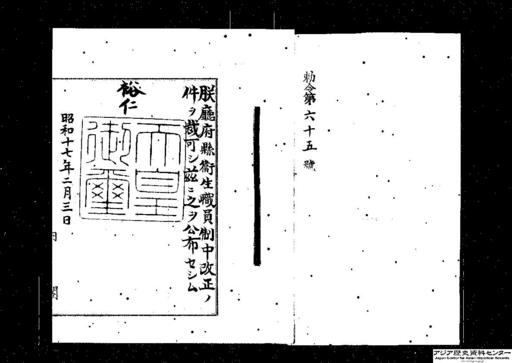 勅令第六十五號
朕廳府縣衞生職員制中改正ノ
件ヲ裁可シ茲ニ之ヲ公布セシム
裕仁
天皇
御璽
昭和十七年二月三日
アジア歴史資料センター
Japan Center for Asian Historical Records